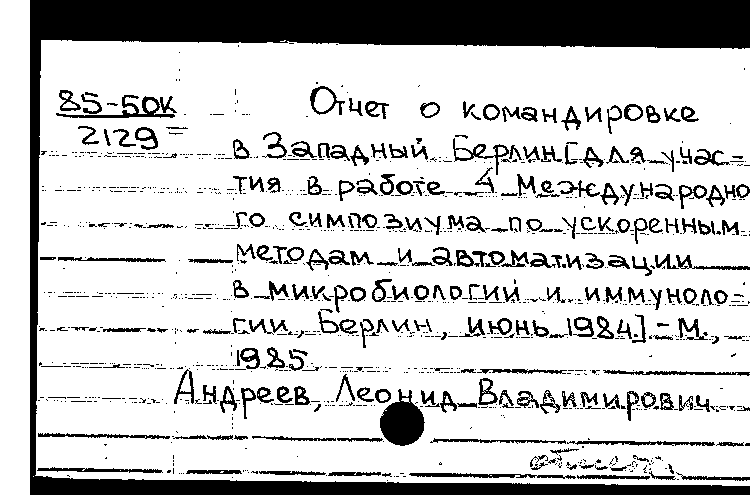 85-50К
2129=
Отчет о командировке
в Западный Берлин[для учас-
тия в работе 4 Международно
го симпозиума по ускоренным
методам и автоматизации
в микробиологии и иммуноло-
гии, Берлин, июнь 1984.]-М.,
1985.
Андреев, Леонид Владимирович